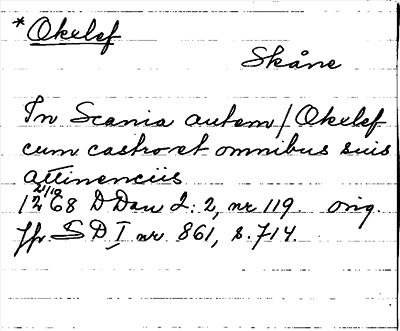 * Okelef
Skåne
In Scania autem / Okelef
cum castro et omnibus suis
attinenciis
21/12
1268 D Dan 2:2, nr 119. orig.
Jfr SD I nr 861, s. 714.